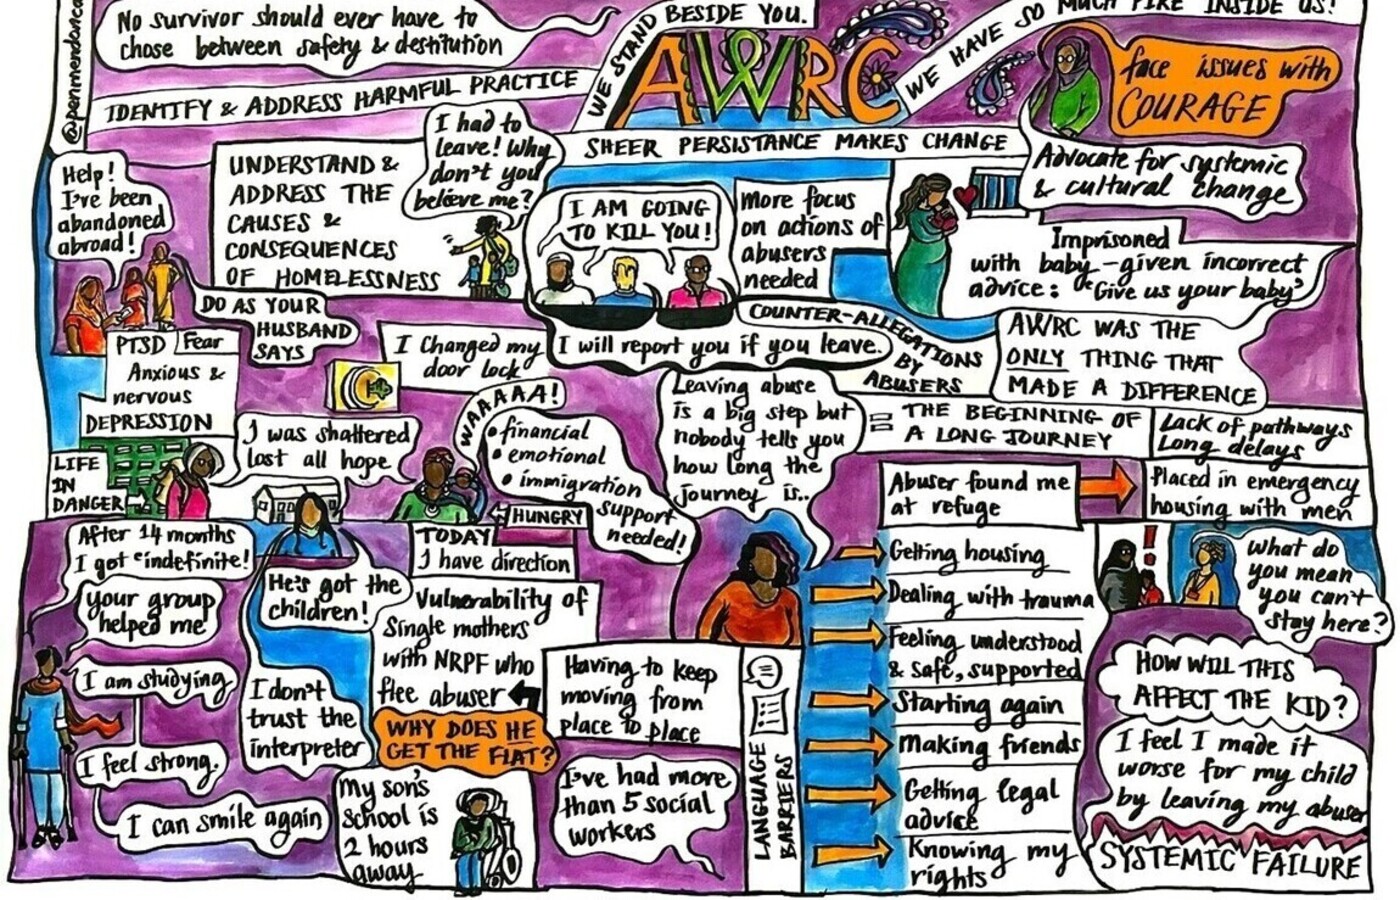 @penmendonca
No survivor should ever have to
chose between safety & destitution
IDENTIFY & ADDRESS HARMFUL PRACTICE
WE STAND BESIDE YOU.
AWRC
WE HAVE SO MUCH FIRE INSIDE US!
face issues with
COURAGE
SHEER PERSISTANCE MAKES CHANGE
Advocate for systemic
& cultural change
Help!
I've been
abandoned
abroad!
UNDERSTAND &
ADDRESS THE
CAUSES &
CONSEQUENCES
OF HOMELESSNESS
I had to
leave! Why
don't you
believe me?
I AM GOING
TO KILL YOU!
more focus
on actions of
abusers
needed
Imprisoned
with baby - given incorrect
advice: "Give us your baby"
DO AS YOUR
HUSBAND
SAYS
I will report you if you leave.
COUNTER-ALLEGATIONS
BY
ABUSERS
AWRC WAS THE
ONLY THING THAT
MADE A DIFFERENCE
PTSD Fear
Anxious &
nervous
DEPRESSION
I changed my
door lock
WAAAAA!
• financial
• emotional
• immigration
support
needed!
Leaving abuse
is a big step but
nobody tells you
how long the
journey is..
= THE BEGINNING OF
A LONG JOURNEY
Lack of pathways
Long delays
I was shattered
lost all hope
LIFE
IN
DANGER
HUNGRY
Abuser found me
at refuge
Placed in emergency
housing with men
After 14 months
I got "indefinite!
your group
helped me
I am studying
I feel strong.
I can smile again
He's got the
children!
I don't
trust the
interpreter
TODAY
I have direction
Vulnerability of
Single mothers
with NRPF who
flee abuser
WHY DOES HE
GET THE FLAT?
My son's
school is
2 hours
away
Having to keep
moving from
place to place
I've had more
than 5 social
workers
LANGUAGE
BARRIERS
Getting housing
Dealing with trauma
Feeling understood
& safe, supported
Starting again
Making friends
Getting legal
advice
Knowing my
rights
!
What do
you mean
you can't
stay here?
HOW WILL THIS
AFFECT THE KID?
I feel I made it
worse for my child
by leaving my abuser
SYSTEMIC FAILURE